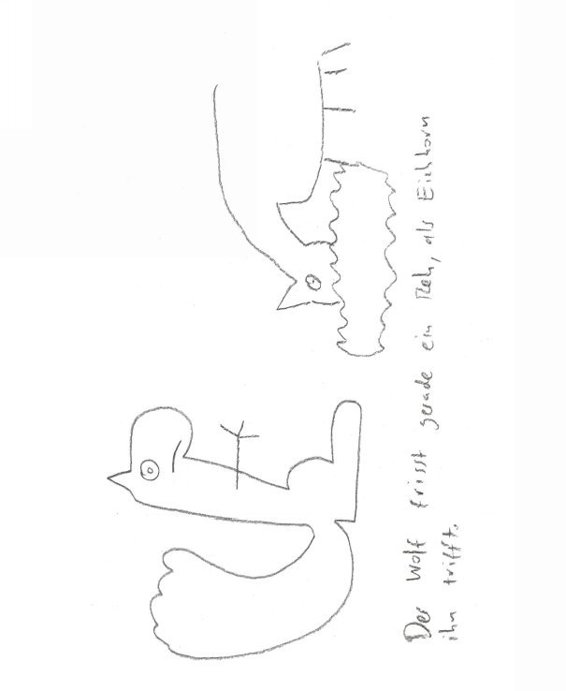 Der Wolf frisst gerade ein Reh, als Eichhorn
ihn trifft.